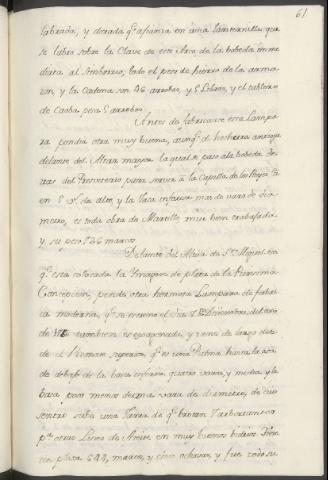 61
labrada, y dorada qe afianza en una lanternilla que
se labro sobre la Clave de este Arco de la bobeda inme
diata al Simborrio, todo el peso de hierro de la arma
zon, y la Cadena son 46 arrobas, y 5 Libras, y el tablon
de Caoba pesa 5 arrobas.
Antes de fabricarse esta Lampa
ra pendia otra muy buena, aunqe de hechura antigua
delante del Altar mayor la qual se paso a la bobeda de
tras del Presviterio para servir a la Capilla de los Reyes
en 5 vs. de alto, y la Taza inferior mas de vara de dia
metro, es toda obra de Martillo muy bien trabajada
y su peso 126 marcos.
Delante del Altar de Sn. Miguel en
qe esta colocada la Ymagen de plata de la Purissima
Concepcion, pende otra hermosa Lampara de fabri
ca moderna, qe se estreno el dia 7 de Diciembre del año
de tambien es gaponada, y tiene de largo des
de el superior, qe es una Palma hasta la
de debajo de la bara quatro varas, y media, y la
bara poco menos de una vara de diametro, de cuio
centro sube una Jarra de qe brotan
pa. otras Luces de Azeite en muy buenos Tien
de plata 544, marcos, y cinco ochavas, y fue todo su